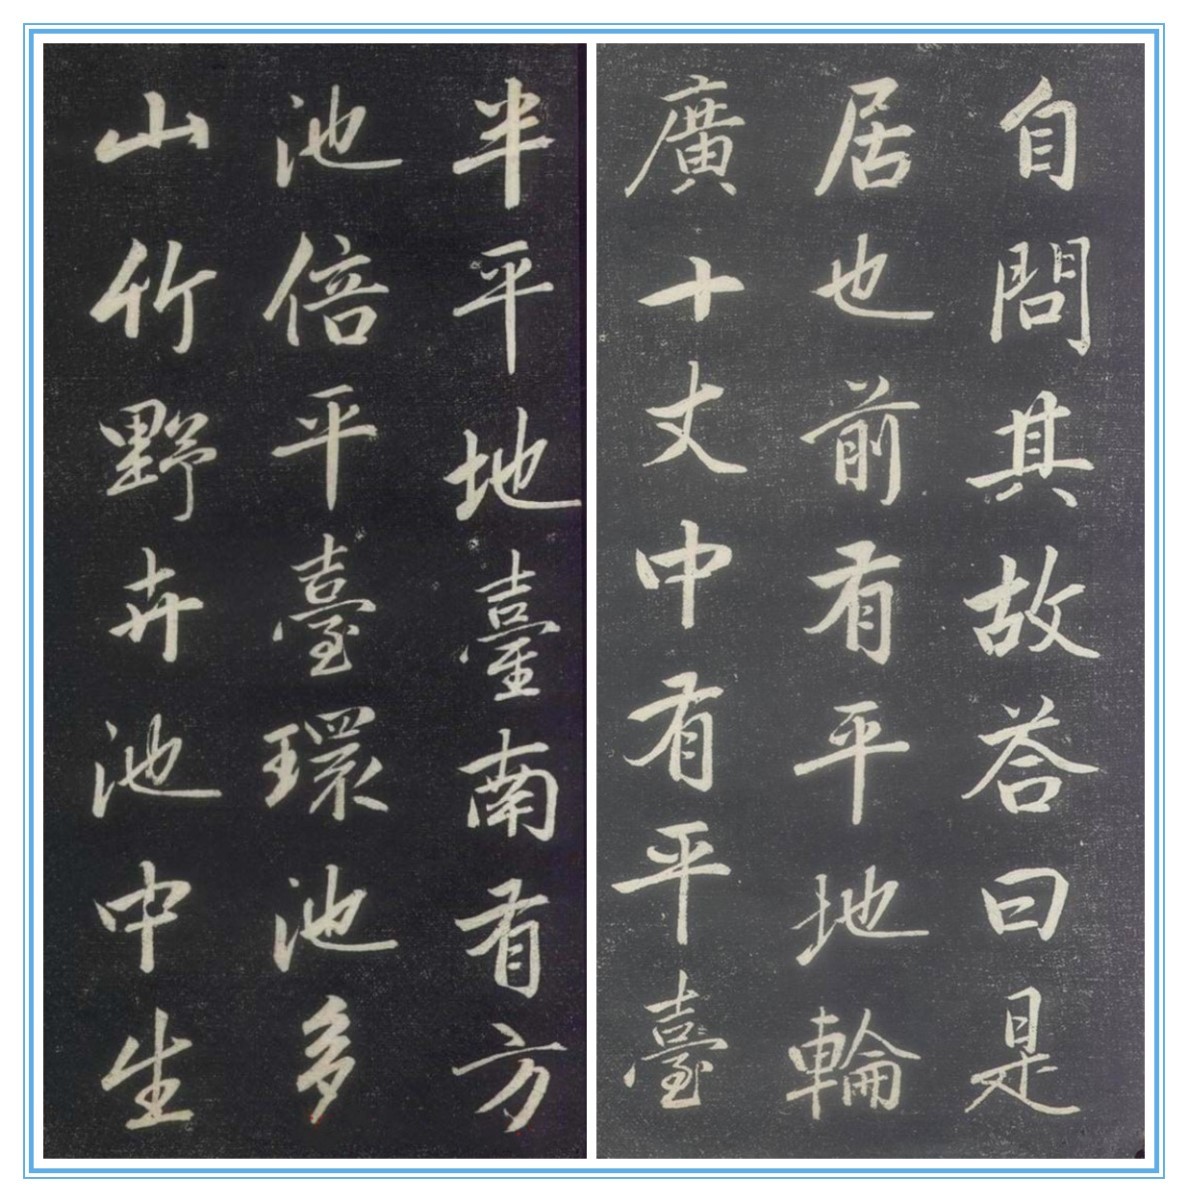 自問其故荅曰是
居也前有平地輪
廣十丈中有平臺
半平地臺南有方
池倍平臺環池多
山竹野卉池中生